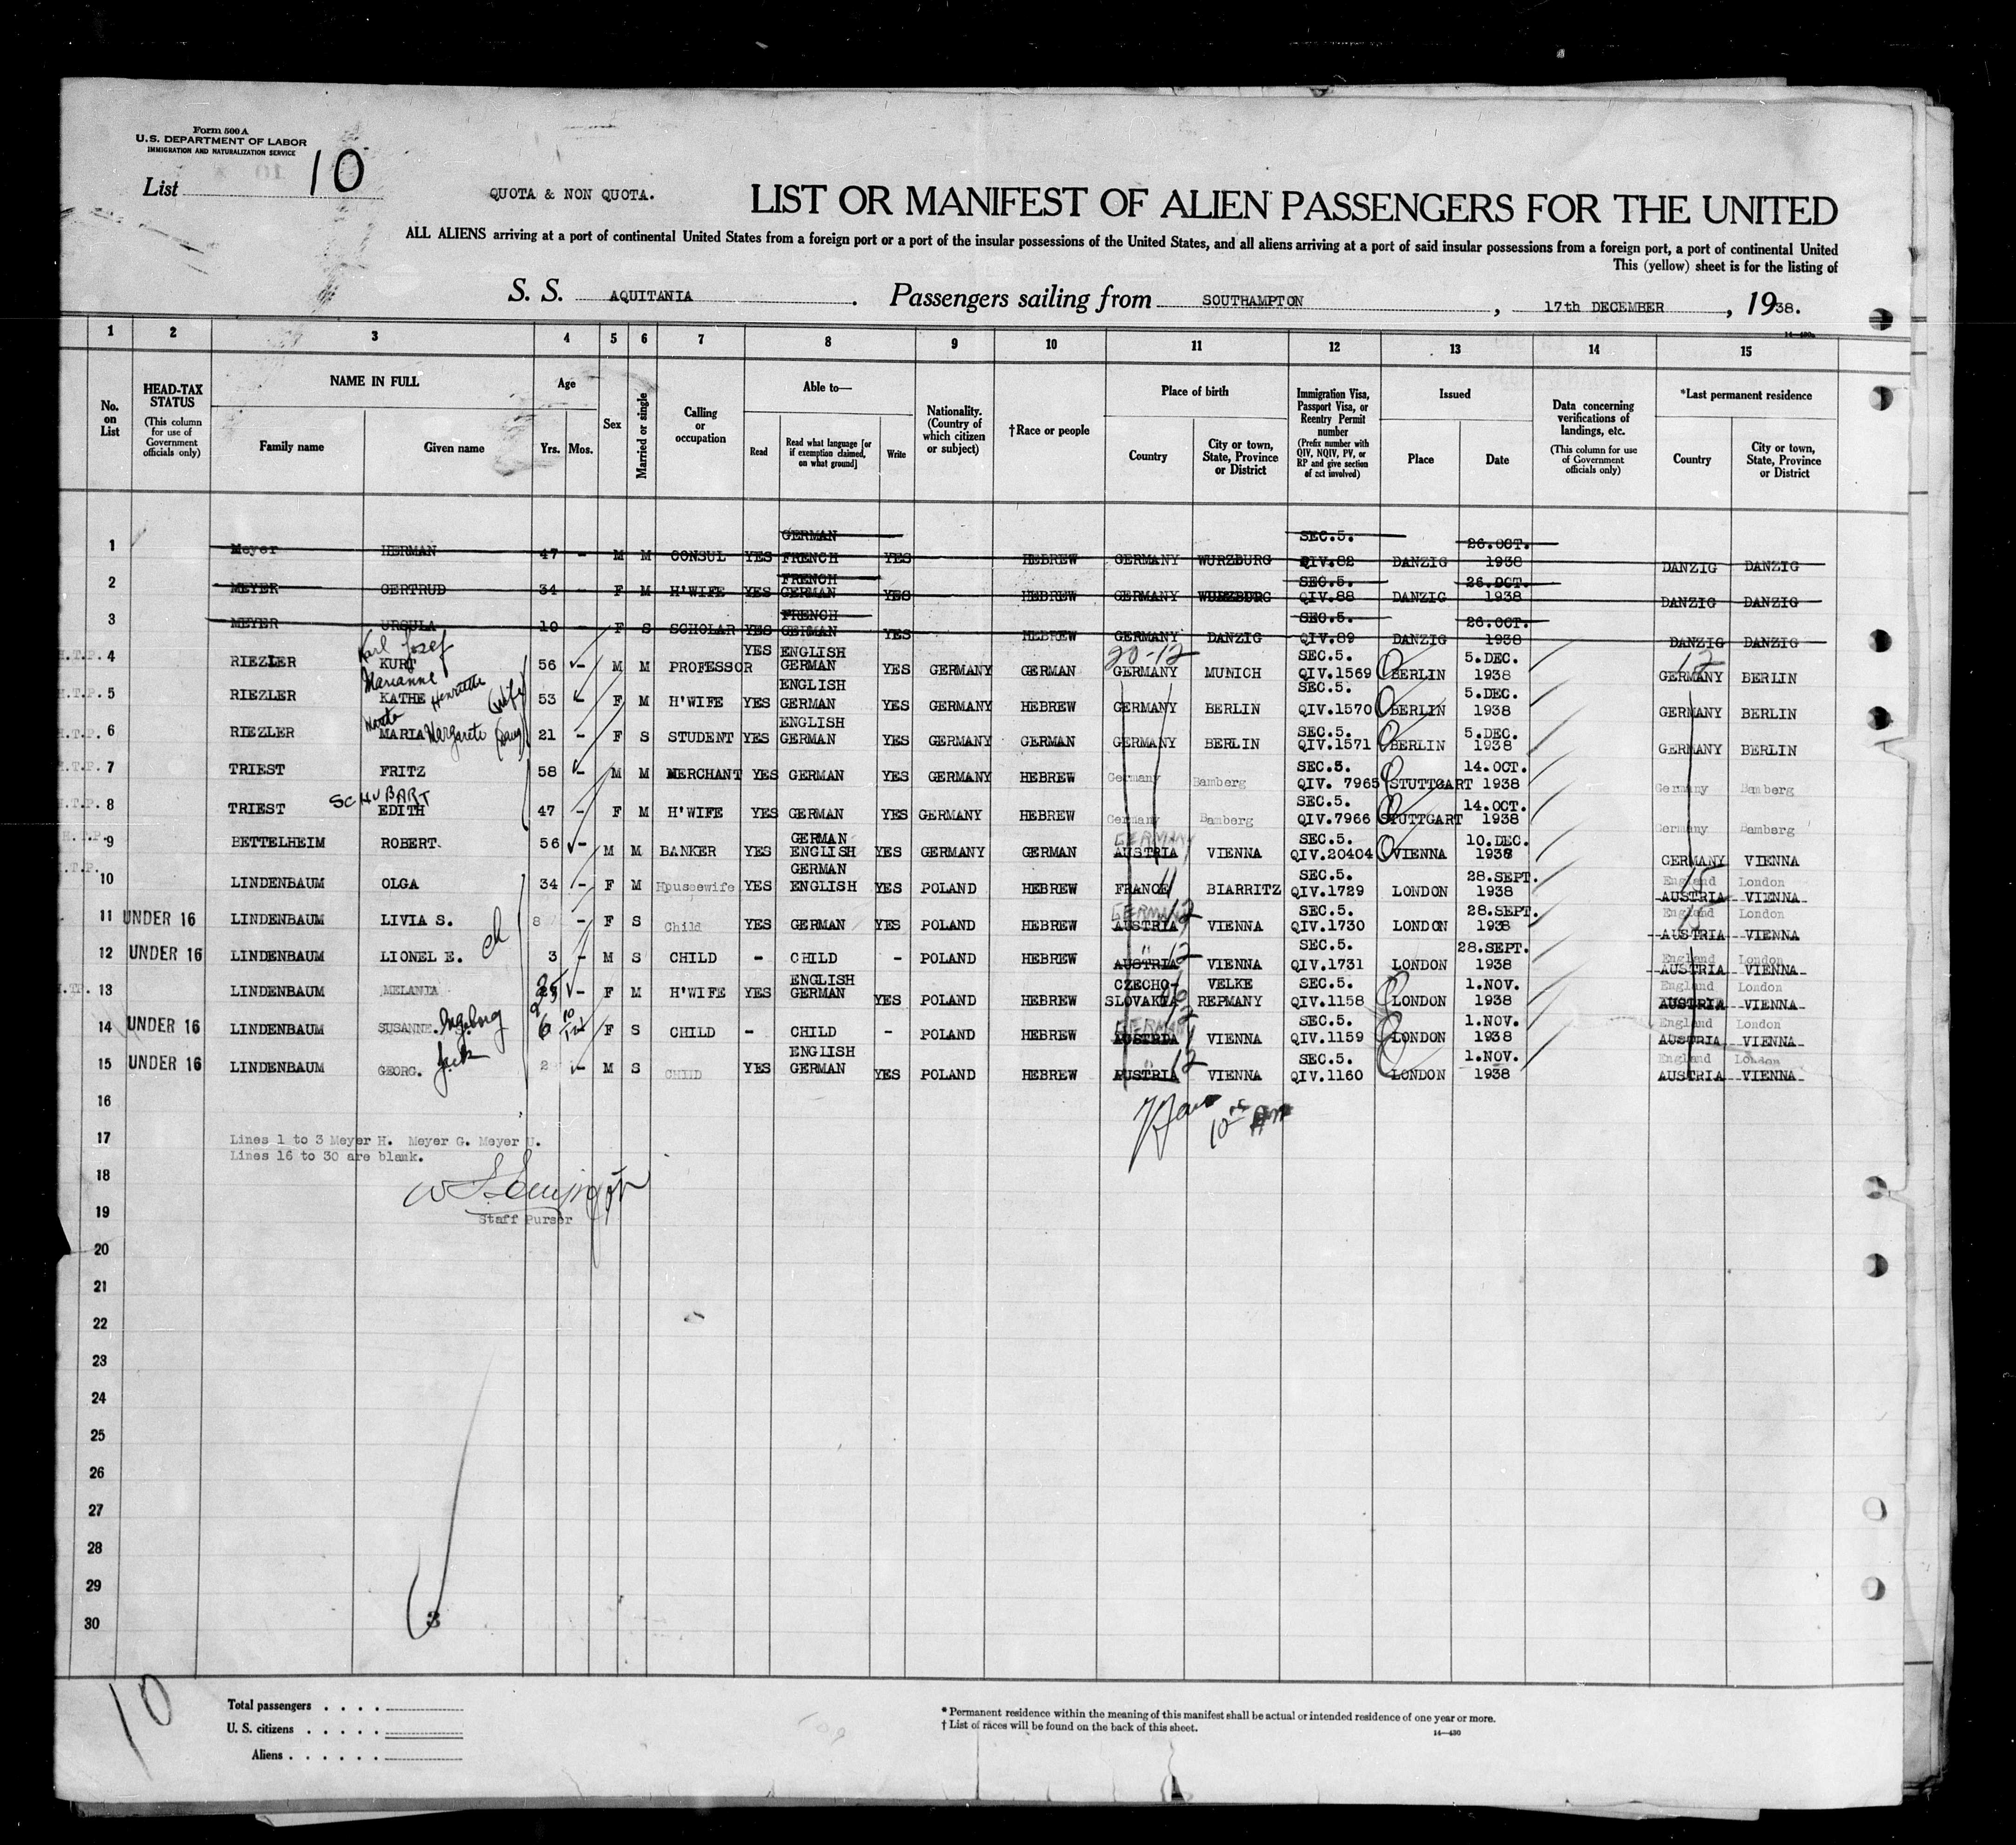 Form 500 A
U.S. DEPARTMENT OF LABOR
IMMIGRATION AND NATURALIZATION SERVICE
List 10
QUOTA & NON QUOTA.
LIST OR MANIFEST OF ALIEN PASSENGERS FOR THE UNITED
ALL ALIENS arriving at a port of continental United States from a foreign port or a port of the insular possessions of the United States, and all aliens arriving at a port of said insular possessions from a foreign port, a port of continental United
This (yellow) sheet is for the listing of
S. S. AQUITANIA. Passengers sailing from SOUTHAMPTON, 17th DECEMBER, 1938.
14—430a
1 2 3 4 5 6 7 8 9 10 11 12 13 14 15
No. on List
HEAD-TAX STATUS (This column for use of Government officials only)
NAME IN FULL Family name Given name
Age Yrs. Mos.
Sex
Married or single
Calling or occupation
Able to— Read Read what language [or if exemption claimed, on what ground] Write
Nationality. (Country of which citizen or subject)
†Race or people
Place of birth Country City or town, State, Province or District
Immigration Visa, Passport Visa, or Reentry Permit number (Prefix number with QIV, NQIV, PV, or RP and give section of act involved)
Issued Place Date
Data concerning verifications of landings, etc. (This column for use of Government officials only)
*Last permanent residence Country City or town, State, Province or District
1 Meyer HERMAN 47 - M M CONSUL YES GERMAN FRENCH YES HEBREW GERMANY WURZBURG SEC.5. QIV.82 DANZIG 26.OCT. 1938 DANZIG DANZIG
2 MEYER GERTRUD 34 - F M H'WIFE YES FRENCH GERMAN YES HEBREW GERMANY WURZBURG SEC.5. QIV.88 DANZIG 26.OCT. 1938 DANZIG DANZIG
3 MEYER URSULA 10 - F S SCHOLAR YES FRENCH GERMAN YES HEBREW GERMANY DANZIG SEC.5. QIV.89 DANZIG 26.OCT. 1938 DANZIG DANZIG
H.T.P. 4 RIEZLER Karl Josef KURT 56 - M M PROFESSOR YES ENGLISH GERMAN YES GERMANY GERMAN 20-12 GERMANY MUNICH SEC.5. QIV.1569 BERLIN 5.DEC. 1938 12 GERMANY BERLIN
H.T.P. 5 RIEZLER Marianne KATHE Henriette (wife) 53 - F M H'WIFE YES ENGLISH GERMAN YES GERMANY HEBREW GERMANY BERLIN SEC.5. QIV.1570 BERLIN 5.DEC. 1938 GERMANY BERLIN
H.T.P. 6 RIEZLER MARIA Margarete (Daug) 21 - F S STUDENT YES ENGLISH GERMAN YES GERMANY GERMAN GERMANY BERLIN SEC.5. QIV.1571 BERLIN 5.DEC. 1938 GERMANY BERLIN
H.T.P. 7 TRIEST FRITZ 58 - M M MERCHANT YES GERMAN YES GERMANY HEBREW Germany Bamberg SEC.5. QIV. 7965 STUTTGART 14.OCT. 1938 Germany Bamberg
H.T.P. 8 TRIEST SCHUBART EDITH 47 - F M H'WIFE YES GERMAN YES GERMANY HEBREW Germany Bamberg SEC.5. QIV.7966 STUTTGART 14.OCT. 1938 Germany Bamberg
H.T.P. 9 BETTELHEIM ROBERT. 56 - M M BANKER YES GERMAN ENGLISH YES GERMANY GERMAN GERMANY AUSTRIA VIENNA SEC.5. QIV.20404 VIENNA 10.DEC. 1938 GERMANY VIENNA
H.T.P. 10 LINDENBAUM OLGA 34 - F M Housewife YES GERMAN ENGLISH YES POLAND HEBREW FRANCE 11 BIARRITZ SEC.5. QIV.1729 LONDON 28.SEPT. 1938 15 England London AUSTRIA VIENNA
11 UNDER 16 LINDENBAUM LIVIA S. 8 - F S Child YES GERMAN YES POLAND HEBREW GERMANY 12 AUSTRIA VIENNA SEC.5. QIV.1730 LONDON 28.SEPT. 1938 England London AUSTRIA VIENNA
12 UNDER 16 LINDENBAUM LIONEL E. ch 3 - M S CHILD - CHILD - POLAND HEBREW " 12 AUSTRIA VIENNA SEC.5. QIV.1731 LONDON 28.SEPT. 1938 England London AUSTRIA VIENNA
H.T.P. 13 LINDENBAUM MELANIA 25 - F M H'WIFE YES ENGLISH GERMAN YES POLAND HEBREW CZECHO-SLOVAKIA VELKE REPMANY SEC.5. QIV.1158 LONDON 1.NOV. 1938 England London AUSTRIA VIENNA
14 UNDER 16 LINDENBAUM SUSANNE. Ingeborg 6 F S CHILD - CHILD - POLAND HEBREW GERMANY 12 AUSTRIA VIENNA SEC.5. QIV.1159 LONDON 1.NOV. 1938 England London AUSTRIA VIENNA
15 UNDER 16 LINDENBAUM GEORG. Jack 2 - M S CHILD YES ENGLISH GERMAN YES POLAND HEBREW " 12 AUSTRIA VIENNA SEC.5. QIV.1160 LONDON 1.NOV. 1938 England London AUSTRIA VIENNA
16
17 Lines 1 to 3 Meyer H. Meyer G. Meyer U.
Lines 16 to 30 are blank.
18
19 Staff Purser
20
21
22
23
24
25
26
27
28
29
30
3
10
Total passengers . . . .
U. S. citizens . . . . .
Aliens . . . . . .
* Permanent residence within the meaning of this manifest shall be actual or intended residence of one year or more.
† List of races will be found on the back of this sheet.
14—430